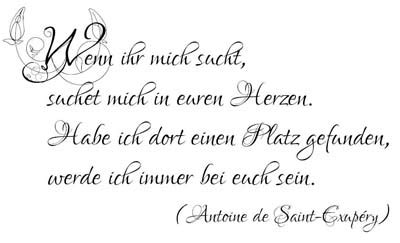 Wenn ihr mich sucht,
suchet mich in euren Herzen.
Habe ich dort einen Platz gefunden,
werde ich immer bei euch sein.
(Antoine de Saint-Exupéry)